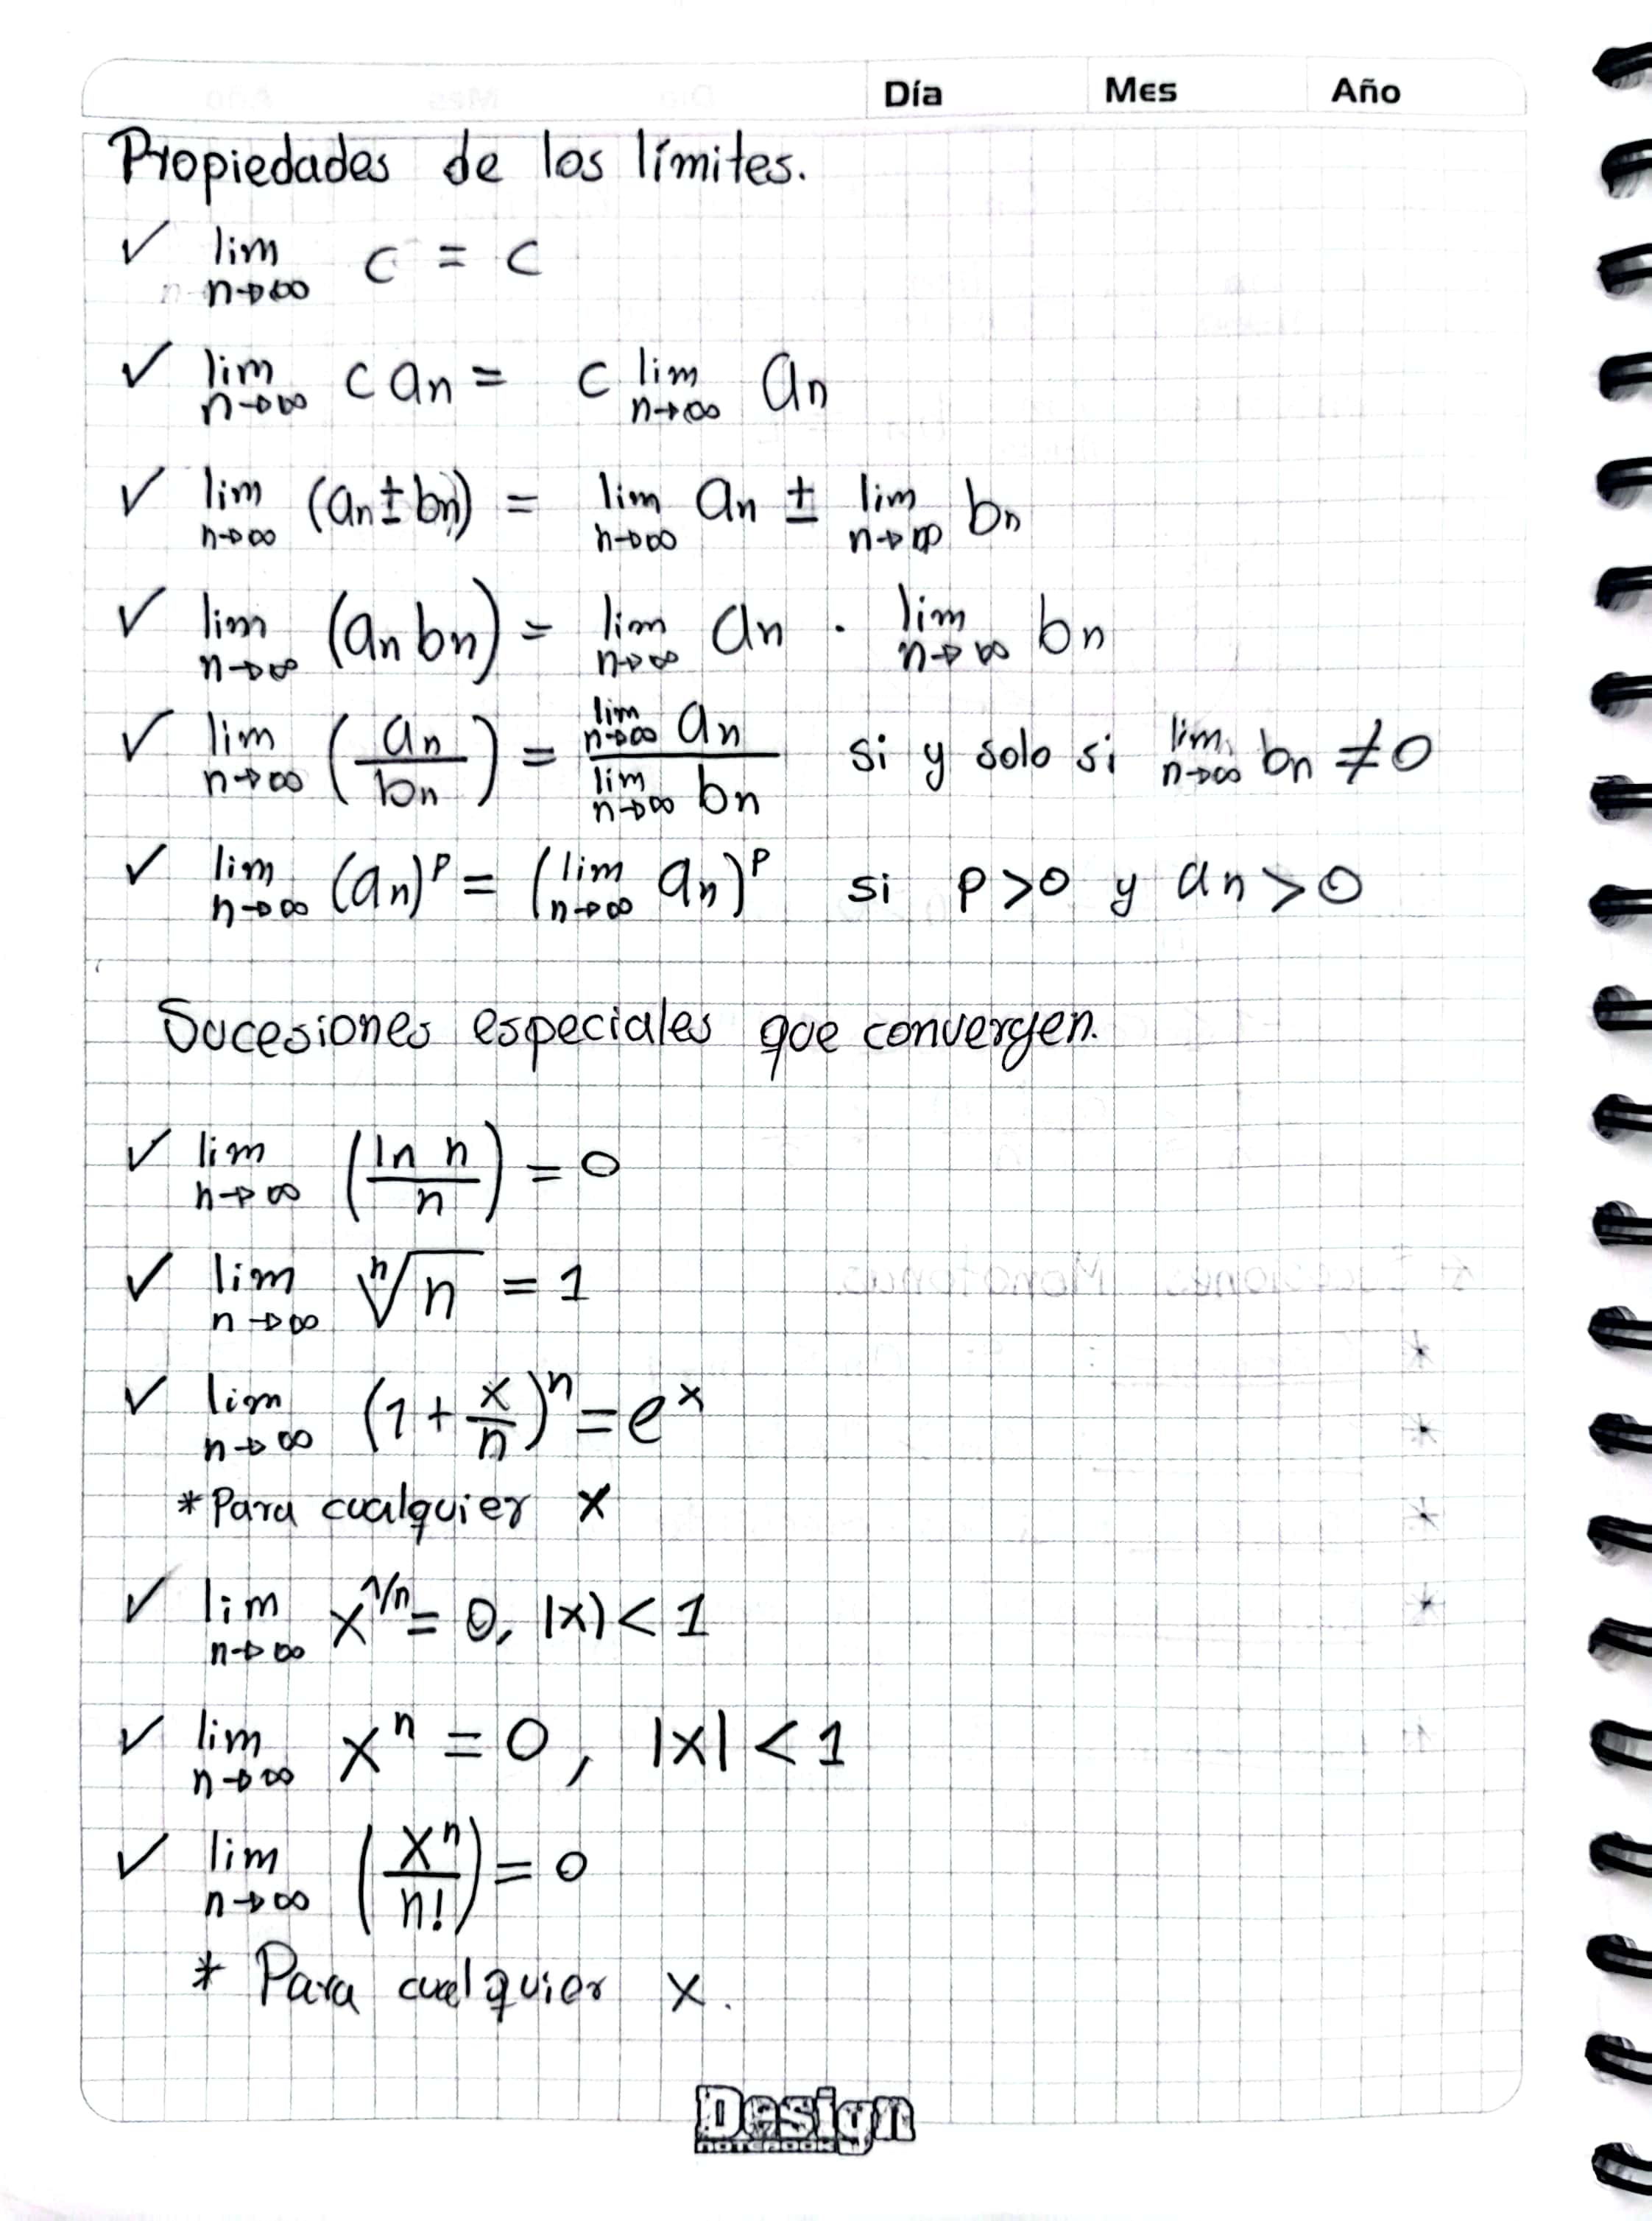 Día Mes Año
Propiedades de los límites.
✓ lim n→∞ c = c
✓ lim n→∞ c an = c lim n→∞ an
✓ lim n→∞ (an ± bn) = lim n→∞ an ± lim n→∞ bn
✓ lim n→∞ (an bn) = lim n→∞ an · lim n→∞ bn
✓ lim n→∞ (an/bn) = lim n→∞ an / lim n→∞ bn si y solo si lim n→∞ bn ≠ 0
✓ lim n→∞ (an)^p = (lim n→∞ an)^p si p > 0 y an > 0
Sucesiones especiales que convergen.
✓ lim n→∞ (ln n / n) = 0
✓ lim n→∞ ⁿ√n = 1
✓ lim n→∞ (1 + x/n)^n = e^x
* Para cualquier x
✓ lim n→∞ x^1/n = 0, |x| < 1
✓ lim n→∞ x^n = 0, |x| < 1
✓ lim n→∞ (x^n / n!) = 0
* Para cualquier x.
Design
NOTEBOOK